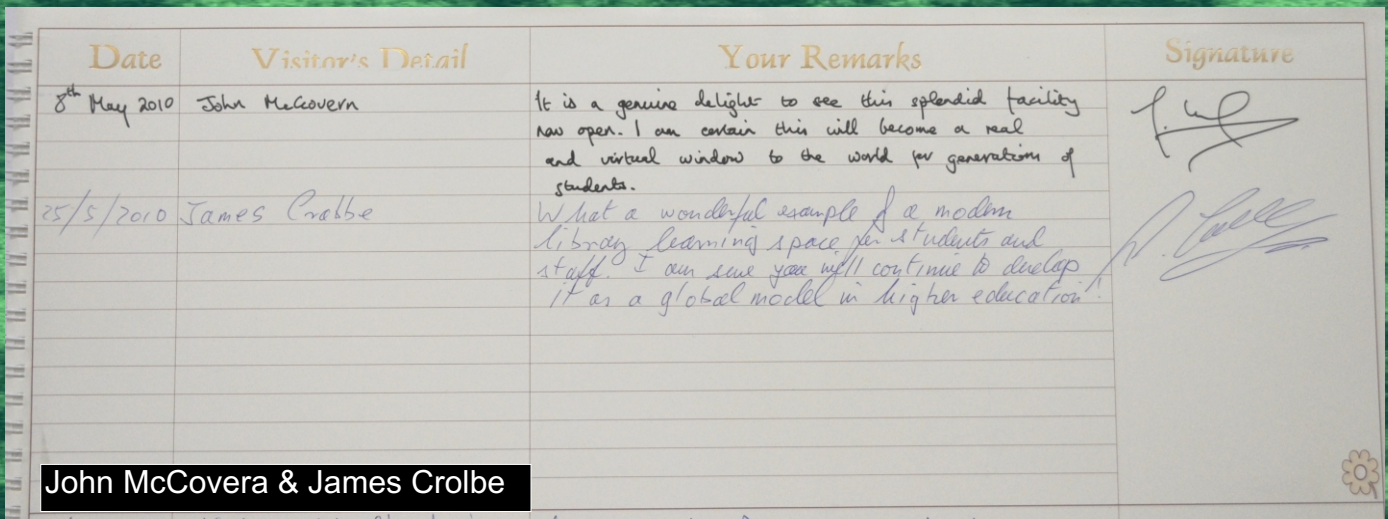 Date Visitor's Detail Your Remarks Signature
8th May 2010 John McGovern It is a genuine delight to see this splendid facility
now open. I am certain this will become a real
and virtual window to the world for generations of
students.
25/5/2010 James Crabbe What a wonderful example of a modern
library learning space for students and
staff. I am sure you will continue to develop
it as a global model in higher education!
John McCovera & James Crolbe